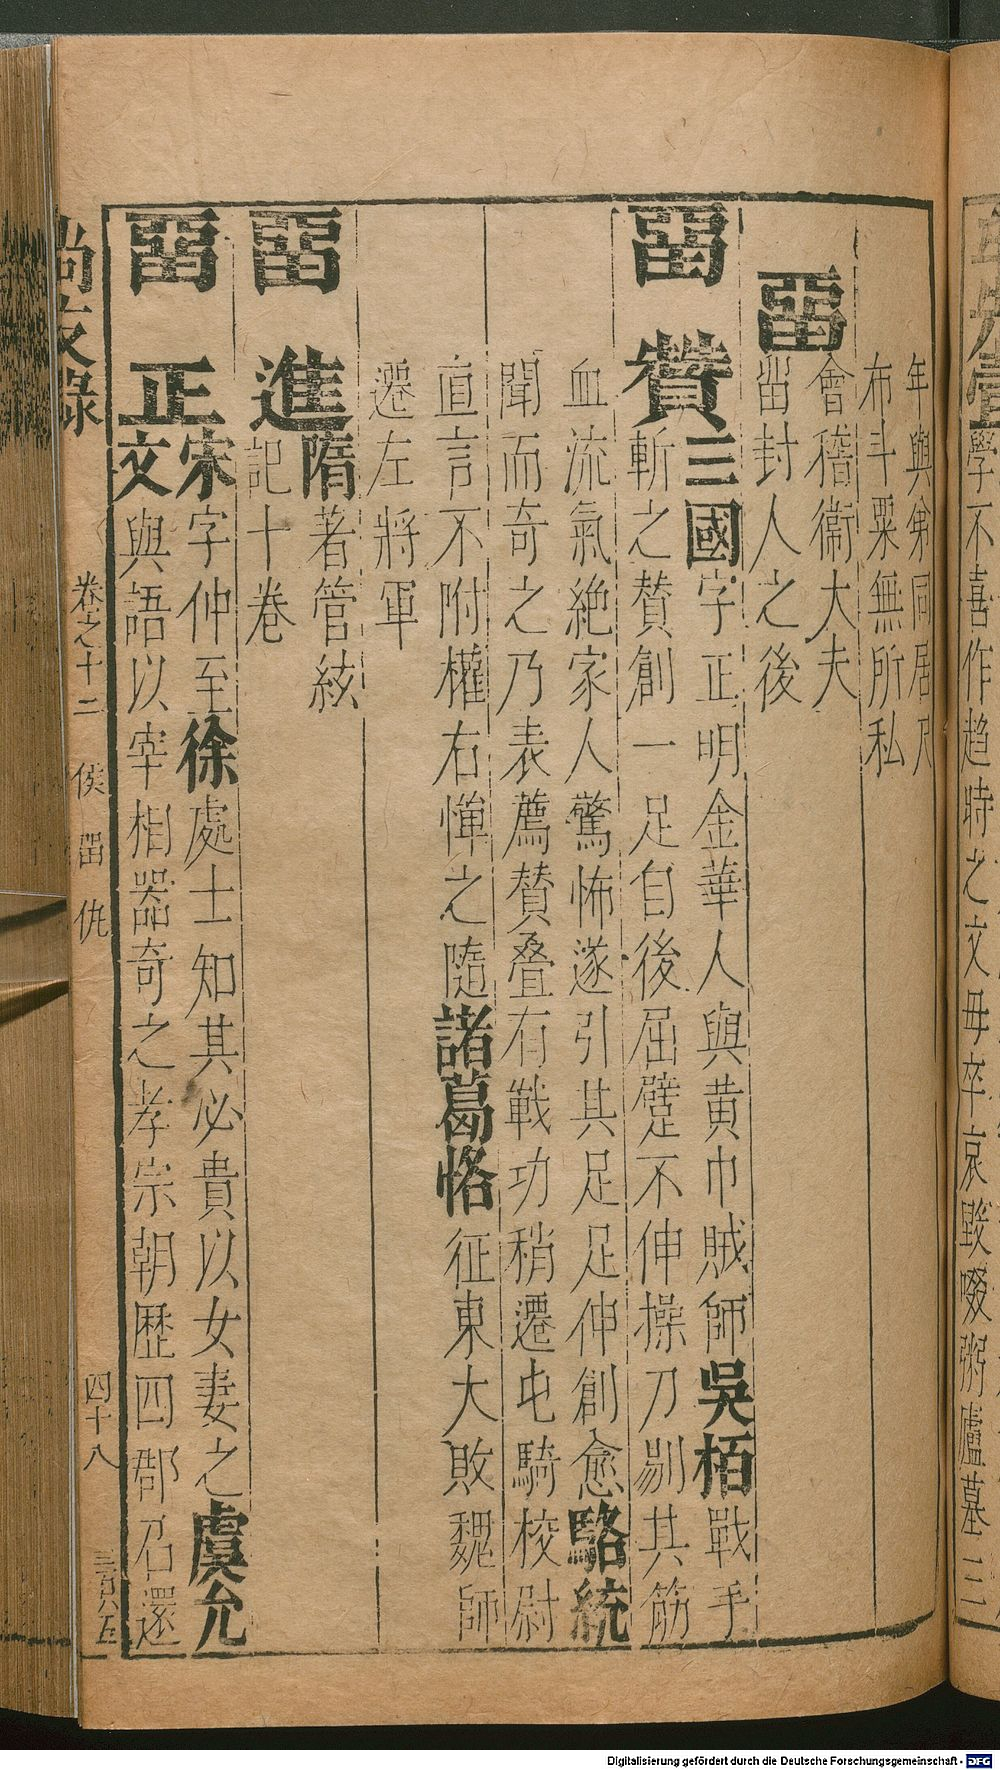 年與弟同居尺
布斗粟無所私
會稽衞大夫
畱
畱封人之後
畱贊三國字正明金華人與黄巾賊師吳栢戰手
斬之贊創一足自後屈躄不伸操刀剔其筋
血流氣絶家人驚怖遂引其足足伸創愈駱統
聞而奇之乃表薦贊叠有戰功稍遷屯騎校尉
直言不附權右憚之隨諸葛恪征東大敗魏師
遷左將軍
畱進隋著管絃
記十卷
畱正宋字仲至徐處士知其必貴以女妻之虞允
文與語以宰相器奇之孝宗朝歷四郡召還
尚友錄 卷之十二 侯 畱 仇 四十八 三百六五
學不喜作趋時之文母卒哀毀啜粥廬墓三
Digitalisierung gefördert durch die Deutsche Forschungsgemeinschaft - DFG